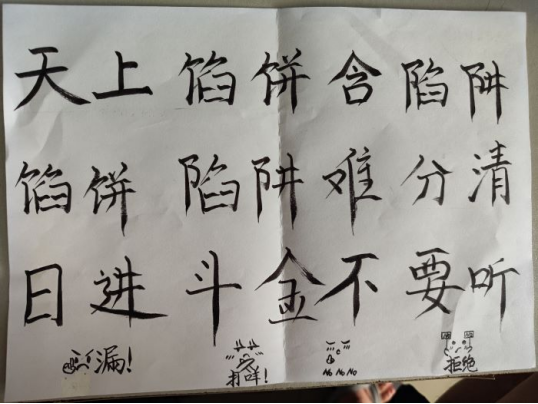 天上馅饼含陷阱
馅饼陷阱难分清
日进斗金不要听
漏! 打咩! No No No 拒绝